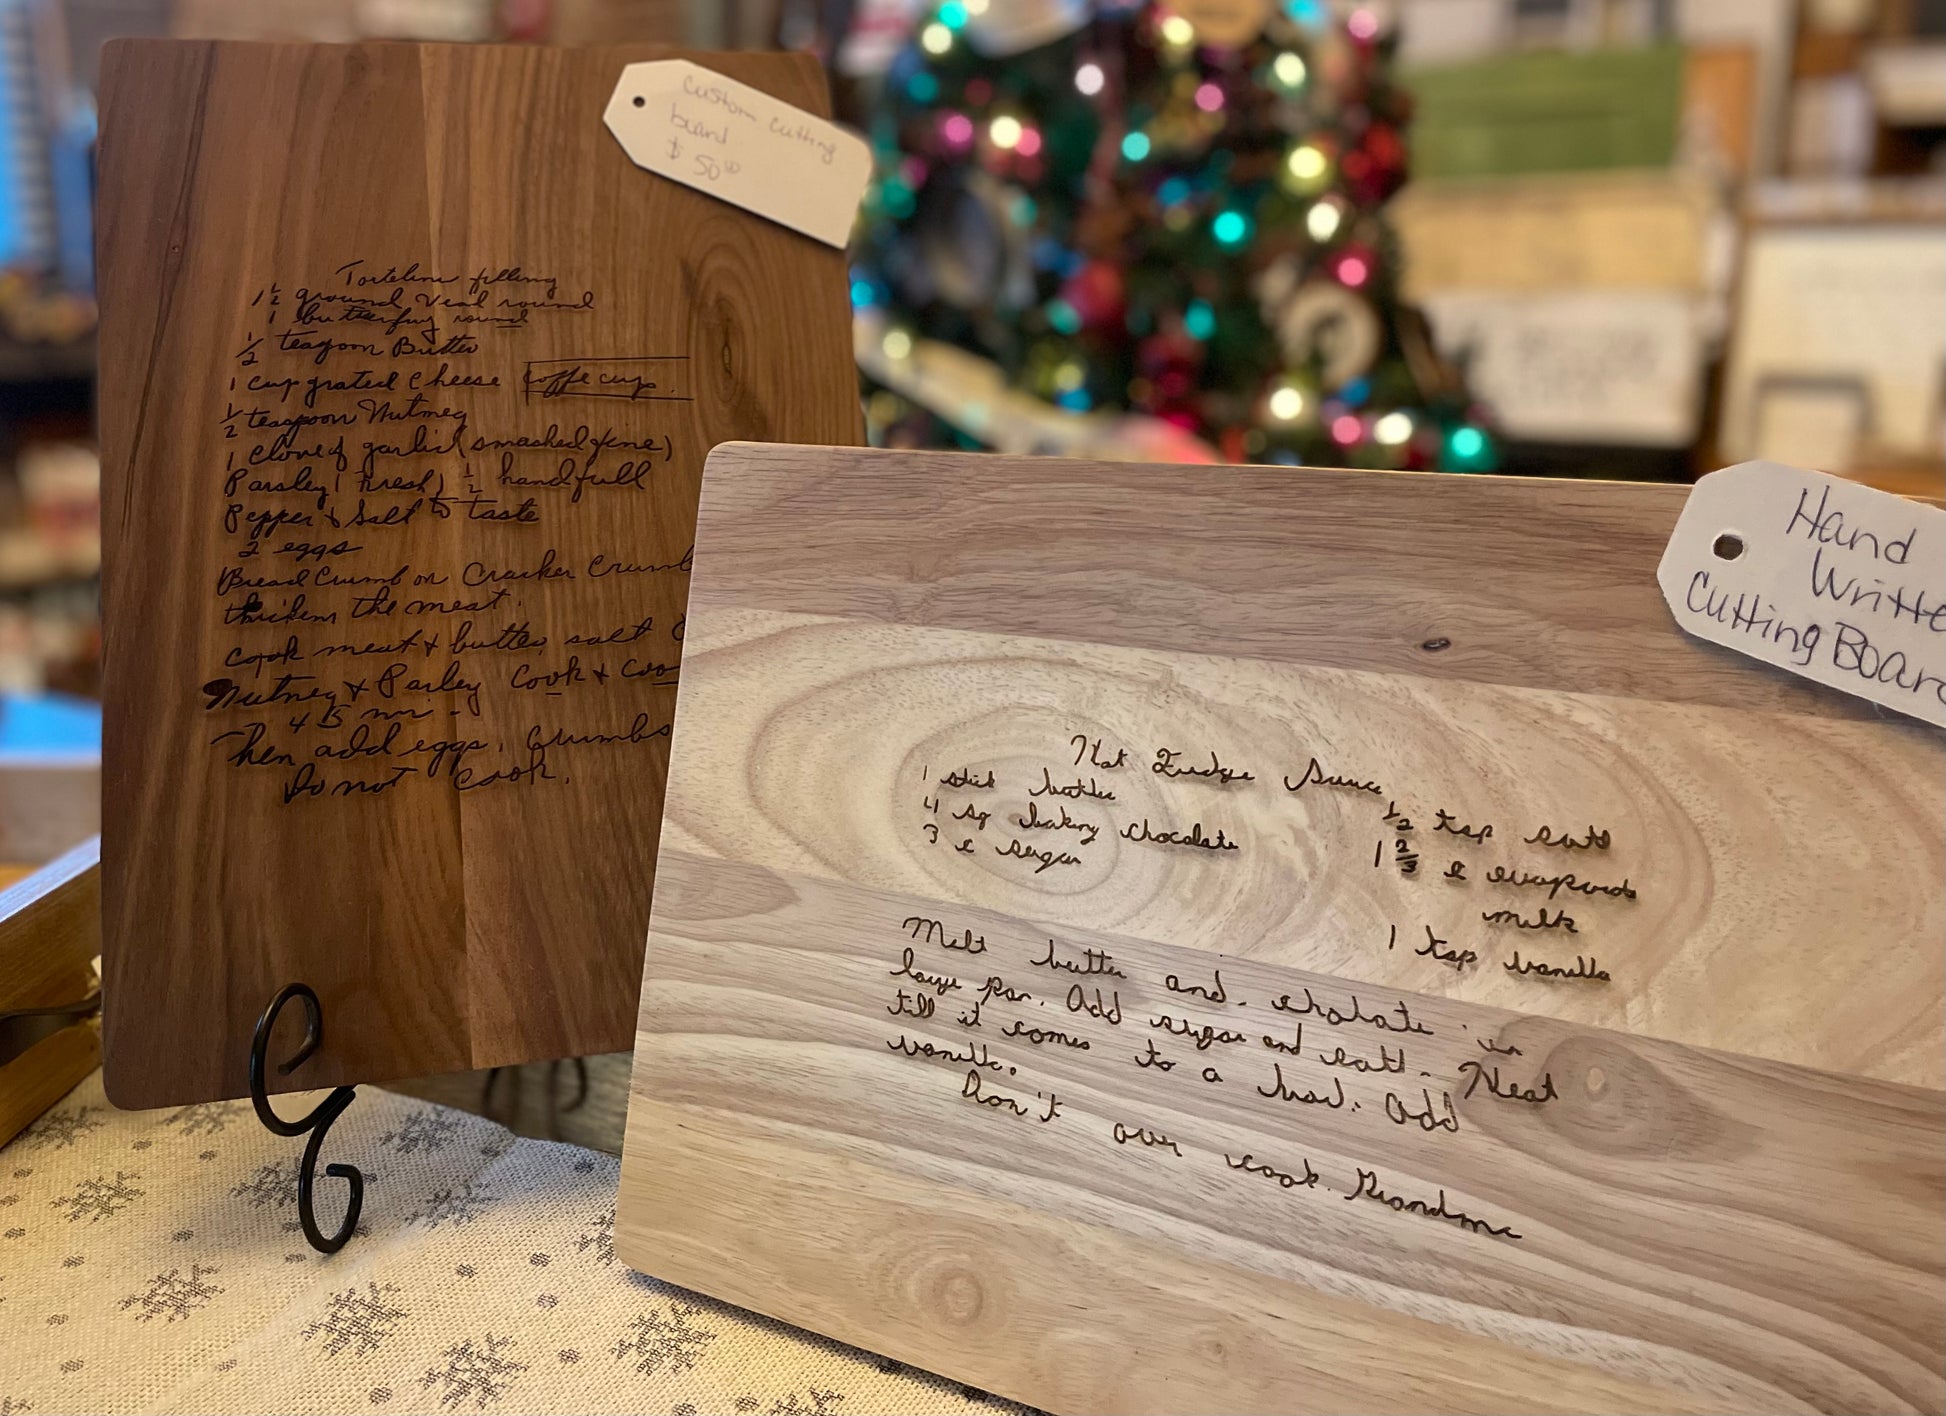 Custom cutting
board
$ 50 00
Tortelini filling
1 1/2 ground veal round
1 butterfly round
1/2 teaspoon Butter
1 cup grated cheese coffe cup.
1/2 teaspoon Nutmeg
1 clove of garlic (smashed fine)
Parsley (fresh) 1/2 handfull
Pepper & Salt to taste
2 eggs
Bread Crumb or Cracker Crumb
thickens the meat.
cook meat & butter, salt
Nutmeg & Parsley Cook &
4 15 min -
Then add eggs, crumbs
Do not cook.
Hand
Writte
Cutting Boar
Hot Fudge Sauce
1 stick butter
4 sq baking chocolate
3 c sugar
1/2 tsp salt
1 2/3 c evaporate
milk
1 tsp vanilla
Melt butter and chocolate in
large pan. Add sugar and salt. Heat
till it comes to a boil. Add
vanilla.
Don't over cook. Grandma